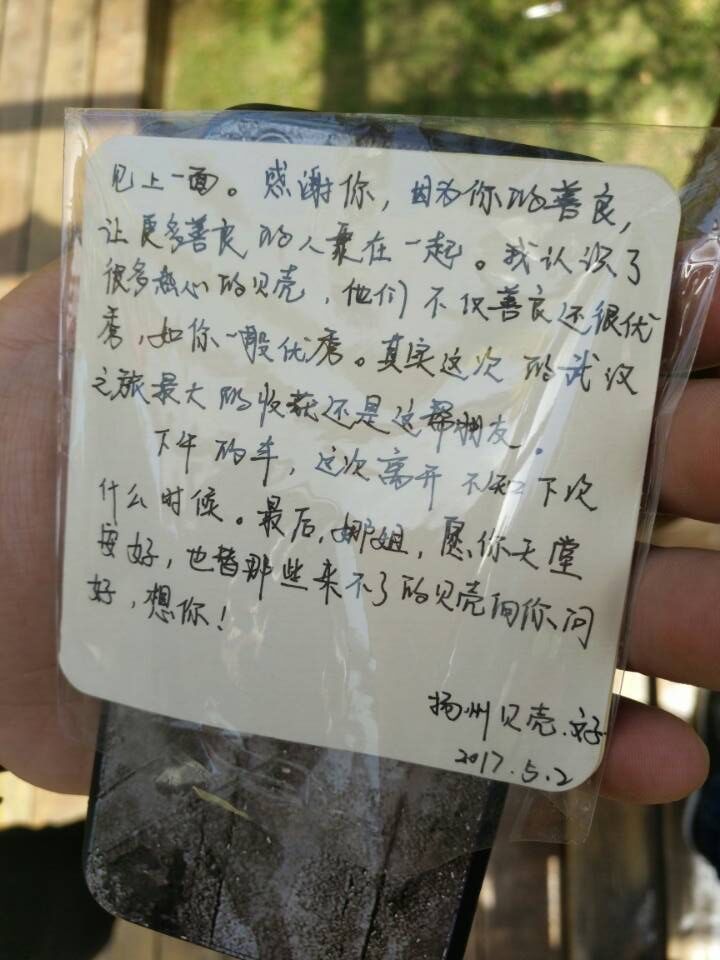 见上一面。感谢你，因为你的善良，
让更多善良的人聚在一起。我认识了
很多热心的贝壳，他们不仅善良还很优
秀，如你一般优秀。真实这次的武汉
之旅最大的收获还是这帮朋友。
下午的车，这次离开不知下次
什么时候。最后，娜姐，愿你天堂
安好，也替那些来不了的贝壳向你问
好，想你！
扬州贝壳.好
2017.5.2